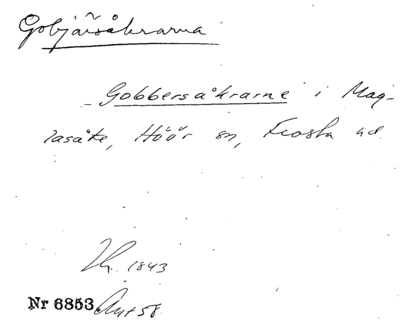 Gobjärsåkrarna
Gobbersåkrarne i Mag-
lasäte, Höör sn, Frosta hd.
1843
Nr 6853 Ant 58.